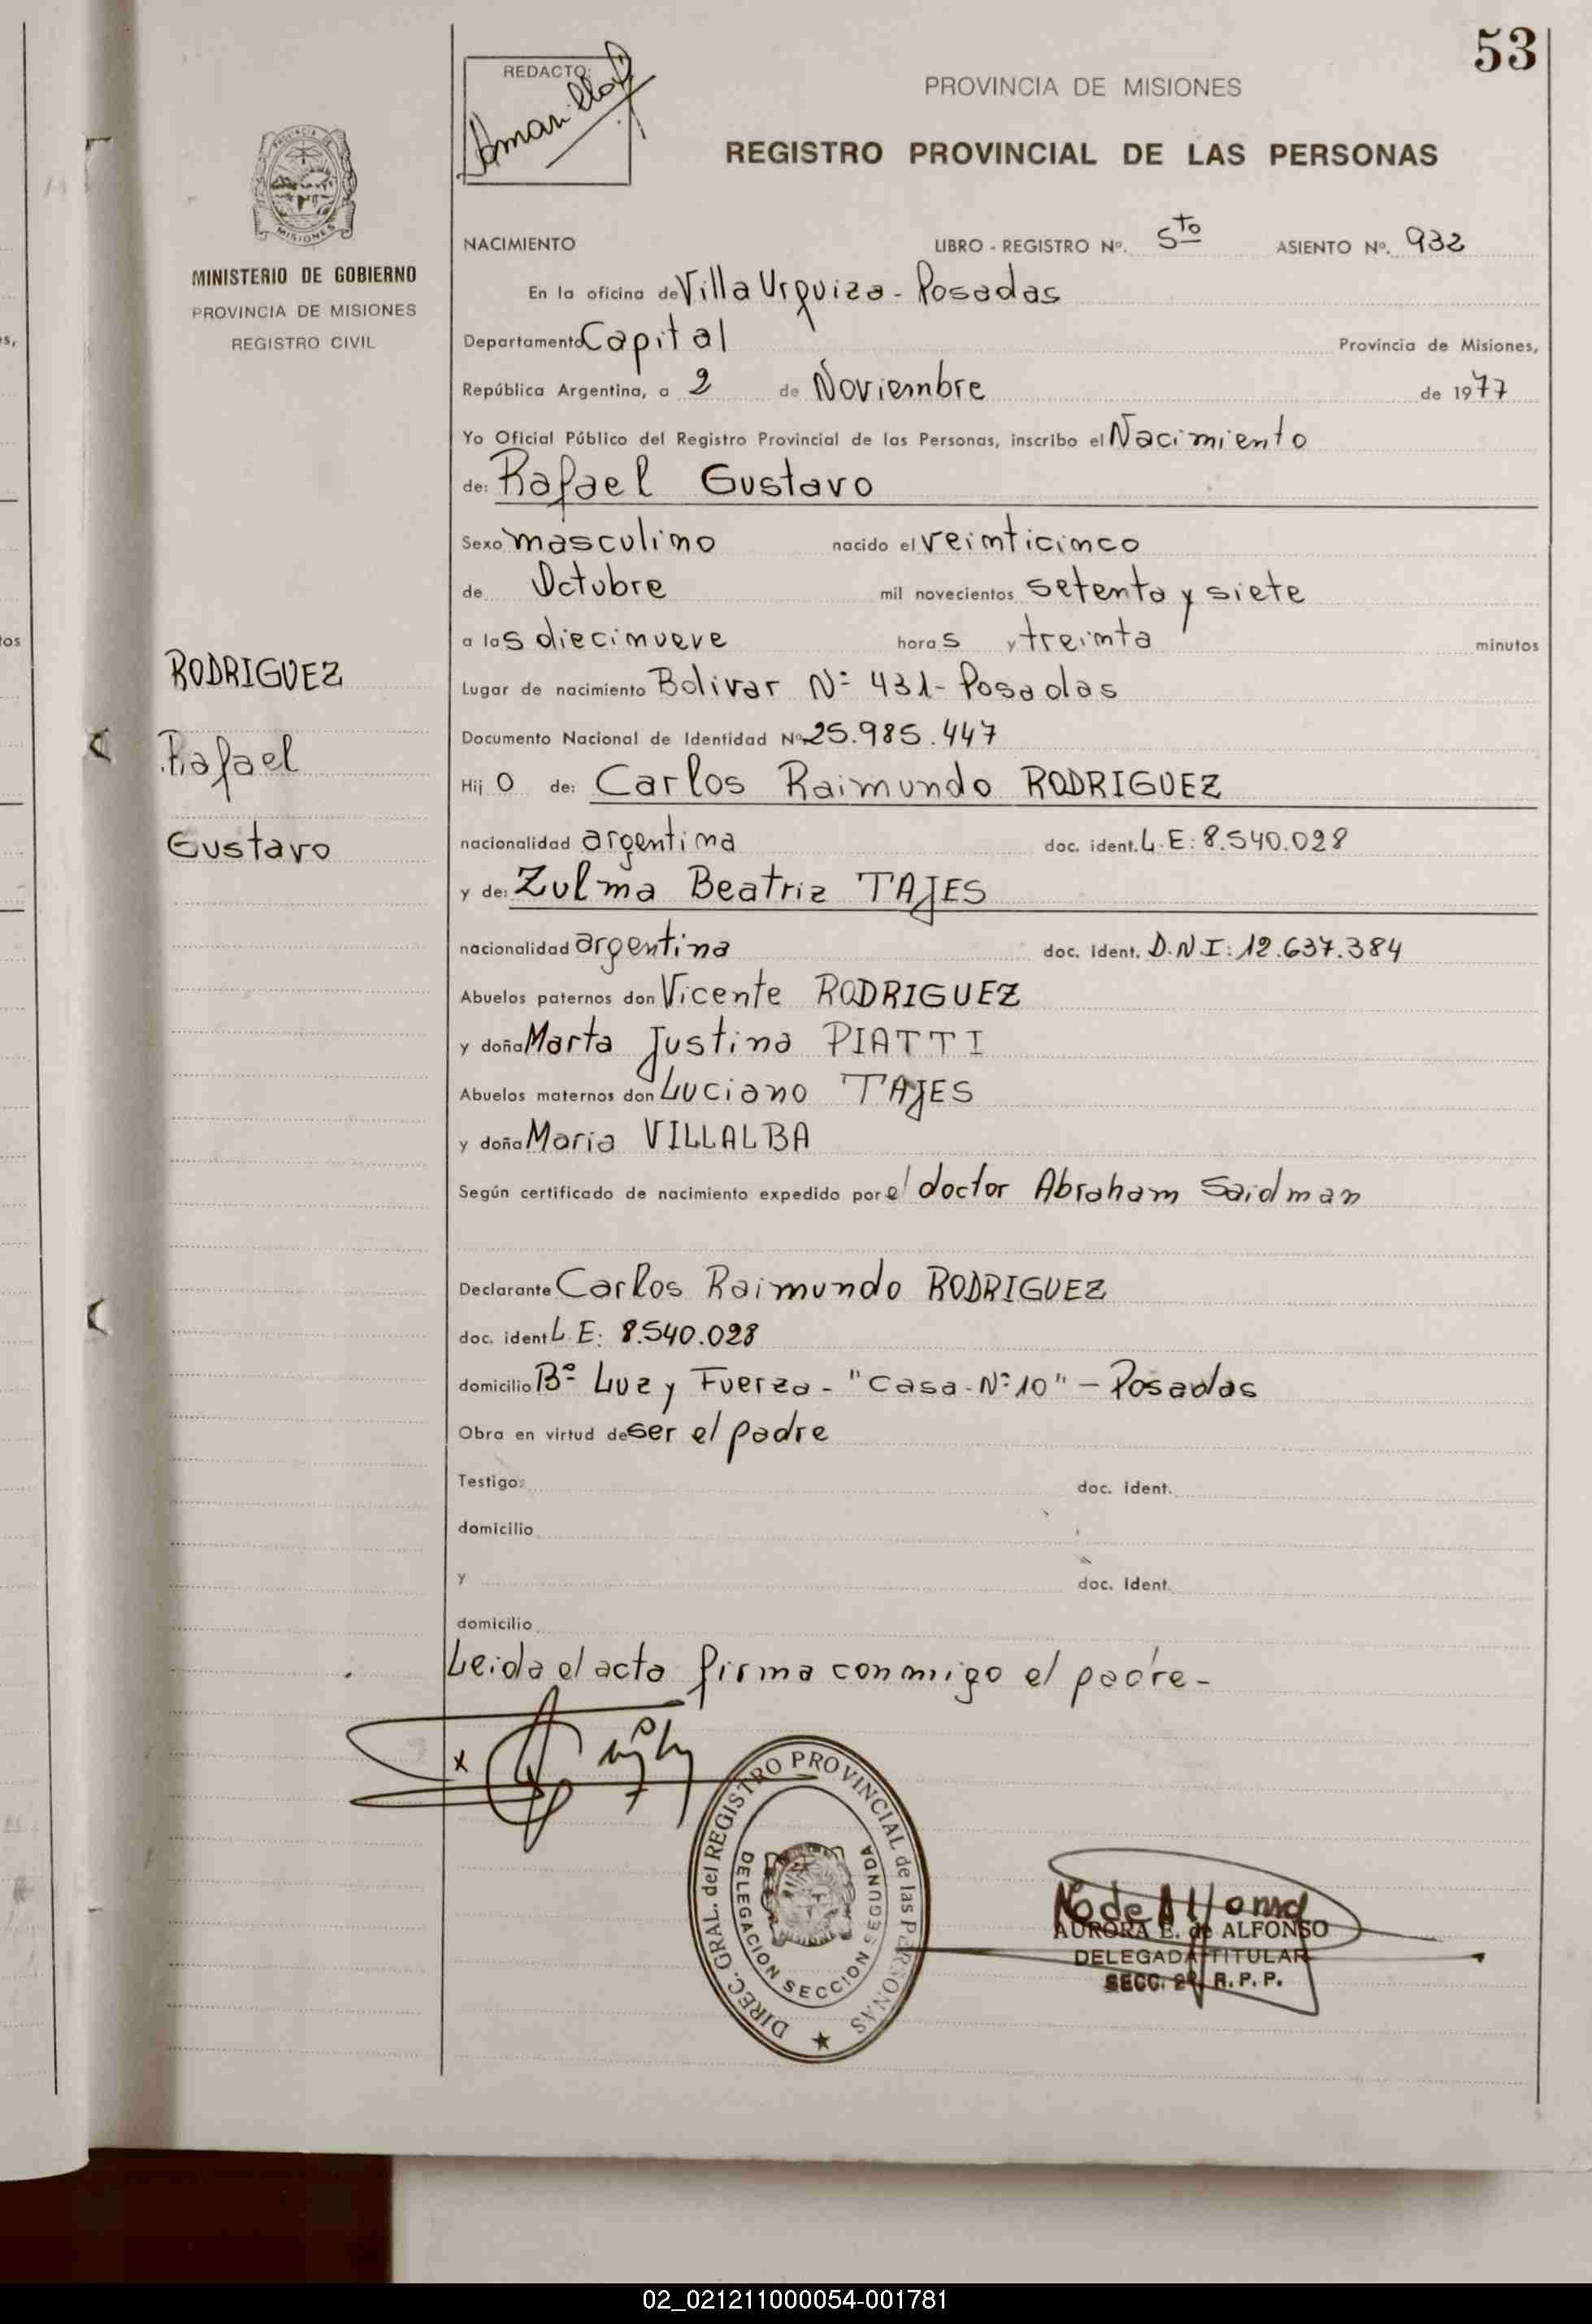 53
REDACTO:
Amarilla
PROVINCIA DE MISIONES
REGISTRO PROVINCIAL DE LAS PERSONAS
MISIONES
MINISTERIO DE GOBIERNO
PROVINCIA DE MISIONES
REGISTRO CIVIL
NACIMIENTO LIBRO - REGISTRO Nº. 5to ASIENTO Nº. 932
En la oficina de Villa Urquiza - Posadas
Departamento Capital Provincia de Misiones,
República Argentina, a 2 de Noviembre de 1977
Yo Oficial Público del Registro Provincial de las Personas, inscribo el Nacimiento
de: Rafael Gustavo
Sexo masculino nacido el veinticinco
de Octubre mil novecientos setenta y siete
a las diecinueve horas y treinta minutos
RODRIGUEZ
Rafael
Gustavo
Lugar de nacimiento Bolivar Nº 431- Posadas
Documento Nacional de Identidad Nº 25.985.447
Hijo de: Carlos Raimundo RODRIGUEZ
nacionalidad argentina doc. ident. L.E: 8.540.028
y de: Zulma Beatriz TAJES
nacionalidad argentina doc. ident. D.N.I: 12.637.384
Abuelos paternos don Vicente RODRIGUEZ
y doña Marta Justina PIATTI
Abuelos maternos don Luciano TAJES
y doña Maria VILLALBA
Según certificado de nacimiento expedido por el doctor Abraham Saidman
Declarante Carlos Raimundo RODRIGUEZ
doc. ident L.E: 8.540.028
domicilio Bº Luz y Fuerza - "Casa - Nº 10" - Posadas
Obra en virtud de ser el padre
Testigo: doc. ident.
domicilio
y doc. ident.
domicilio
Leida el acta firma conmigo el padre -
x
DIREC. GRAL. del REGISTRO PROVINCIAL de las PERSONAS
DELEGACION SECCION SEGUNDA
N de Alfonso
AURORA E. de ALFONSO
DELEGADA TITULAR
SECC. 2ª R. P. P.
02_021211000054-001781